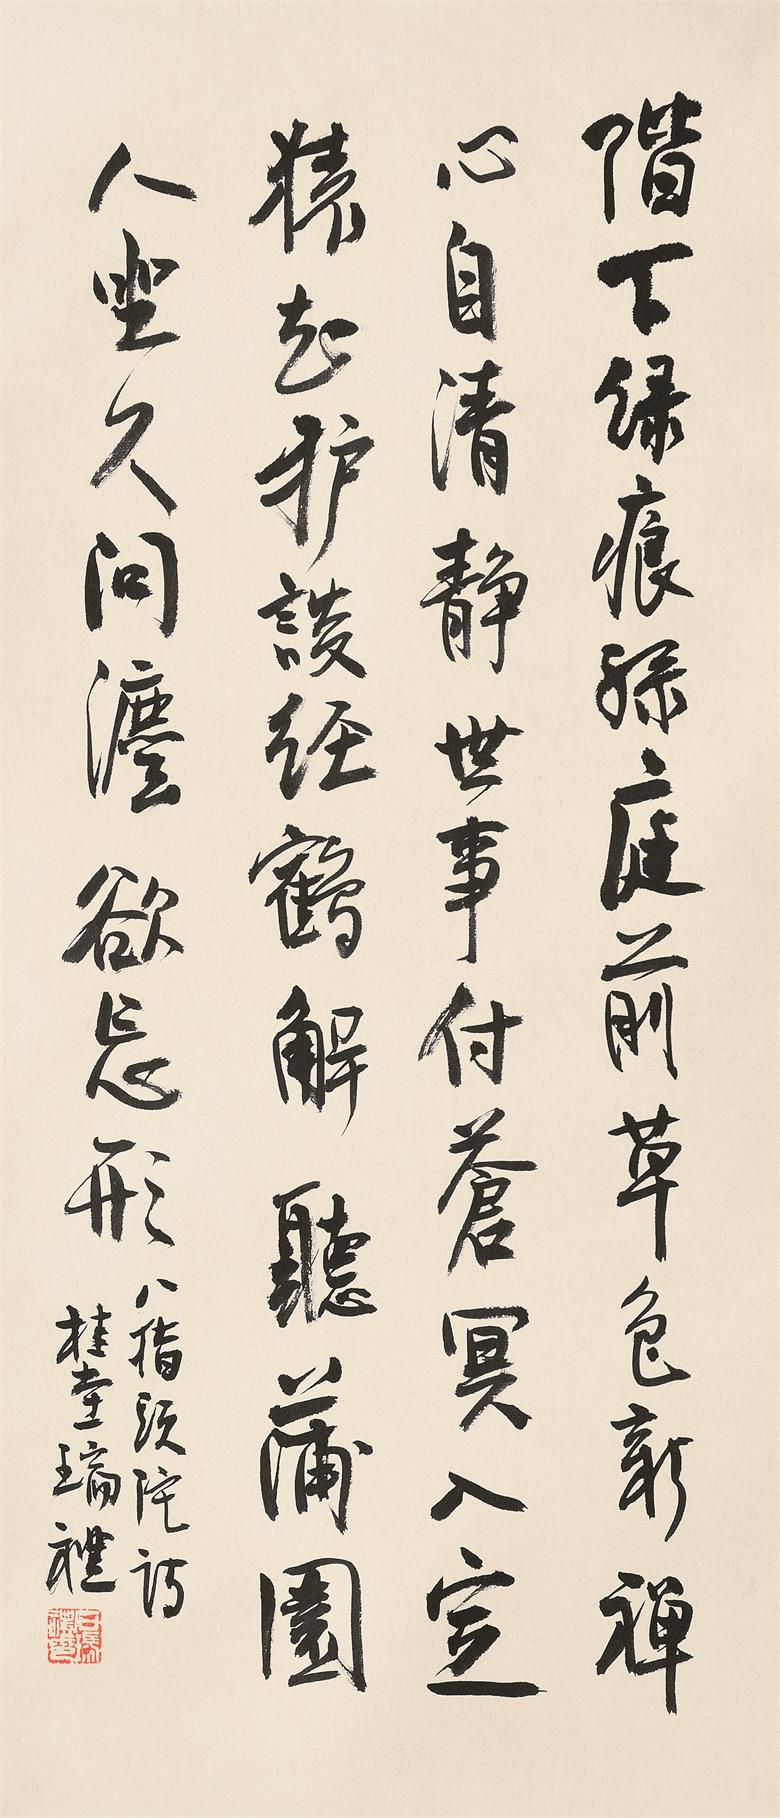 階下緑痕緑庭前草色新禪
心自清靜世事付蒼冥入定
猿起护談經鶴解聽蒲團
人坐久問灋欲忘形
八指頭陀詩
桂堂瑞禮